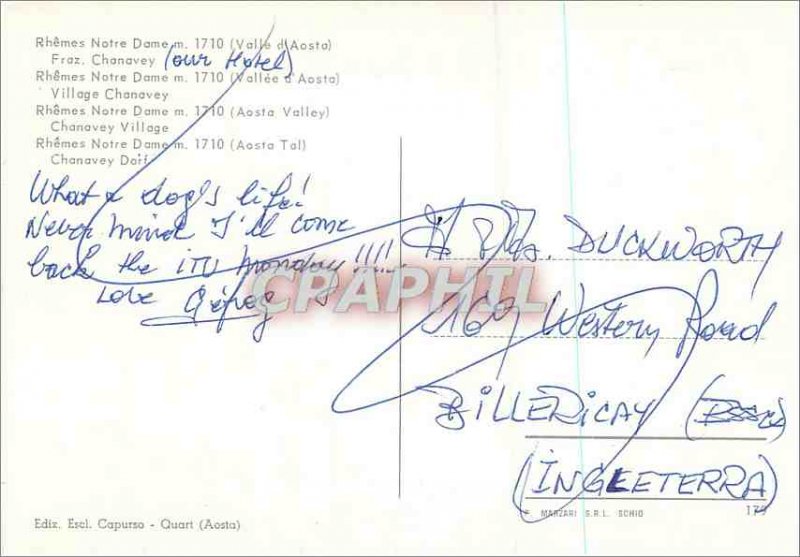 Rhêmes Notre Dame m. 1710 (Valle d'Aosta)
Fraz. Chanavey (our Hotel)
Rhêmes Notre Dame m. 1710 (Vallée d'Aosta)
Village Chanavey
Rhêmes Notre Dame m. 1710 (Aosta Valley)
Chanavey Village
Rhêmes Notre Dame m. 1710 (Aosta Tal)
Chanavey Dorf
What a dog's life!
Never mind I'll come
back the monday!!!!
Love
DUCKWORTH
169 Western Road
BILLERICAY (Essex)
(INGLETERRA)
CPAPHIL
Ediz. Escl. Capurso - Quart (Aosta)
MARZARI S.R.L. SCHIO 179